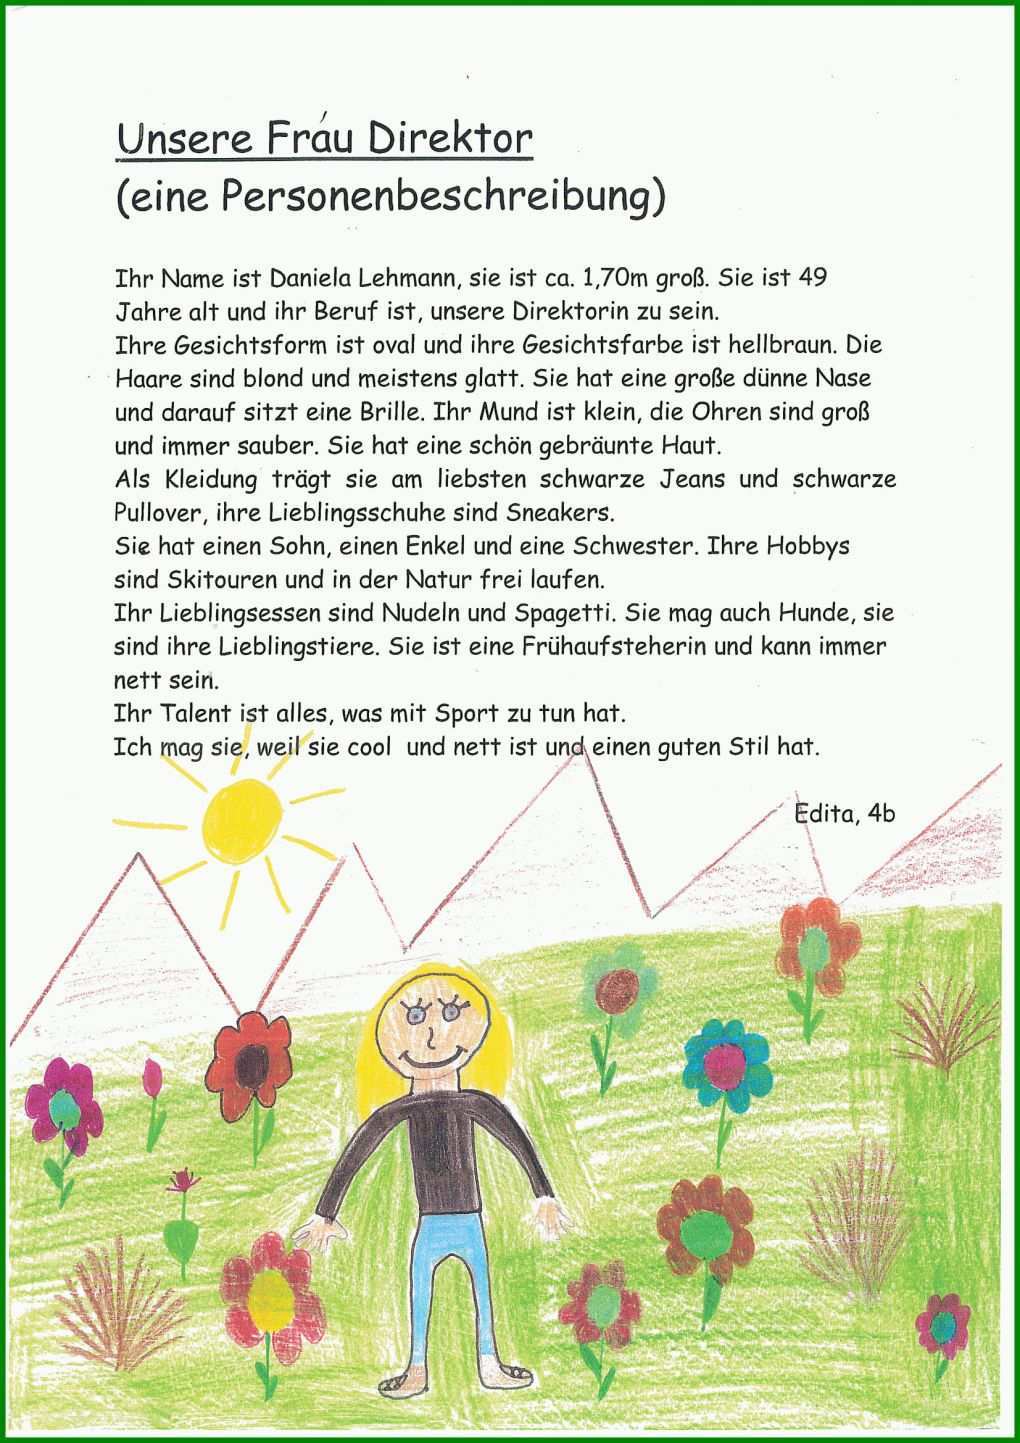 Unsere Frau Direktor
(eine Personenbeschreibung)
Ihr Name ist Daniela Lehmann, sie ist ca. 1,70m groß. Sie ist 49
Jahre alt und ihr Beruf ist, unsere Direktorin zu sein.
Ihre Gesichtsform ist oval und ihre Gesichtsfarbe ist hellbraun. Die
Haare sind blond und meistens glatt. Sie hat eine große dünne Nase
und darauf sitzt eine Brille. Ihr Mund ist klein, die Ohren sind groß
und immer sauber. Sie hat eine schön gebräunte Haut.
Als Kleidung trägt sie am liebsten schwarze Jeans und schwarze
Pullover, ihre Lieblingsschuhe sind Sneakers.
Sie hat einen Sohn, einen Enkel und eine Schwester. Ihre Hobbys
sind Skitouren und in der Natur frei laufen.
Ihr Lieblingsessen sind Nudeln und Spagetti. Sie mag auch Hunde, sie
sind ihre Lieblingstiere. Sie ist eine Frühaufsteherin und kann immer
nett sein.
Ihr Talent ist alles, was mit Sport zu tun hat.
Ich mag sie, weil sie cool  und nett ist und einen guten Stil hat.
Edita, 4b